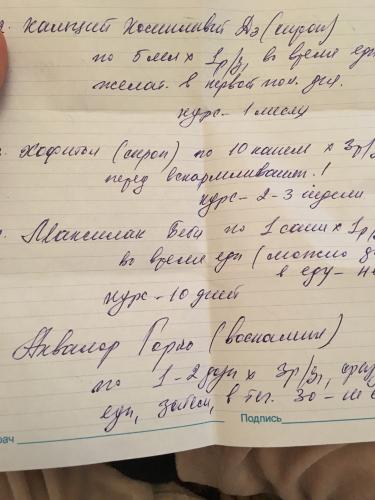 Кальций Хосинливый Д3 (сироп)
по 5 мл х 1 р/д, во время еды
желат. в первой пол. дня.
курс - 1 месяц
Хофитол (сироп) по 10 капель х 3р/
перед вскармливанием!
курс - 2-3 недели
Максилак Беби по 1 саше х 1р/
во время еды (можно
в еду - не
курс - 10 дней
Аквалор Горло (воспаление)
по 1-2 дозы х 3р/д, сразу
еды, затем, в теч. 30 - не
рач
Подпись